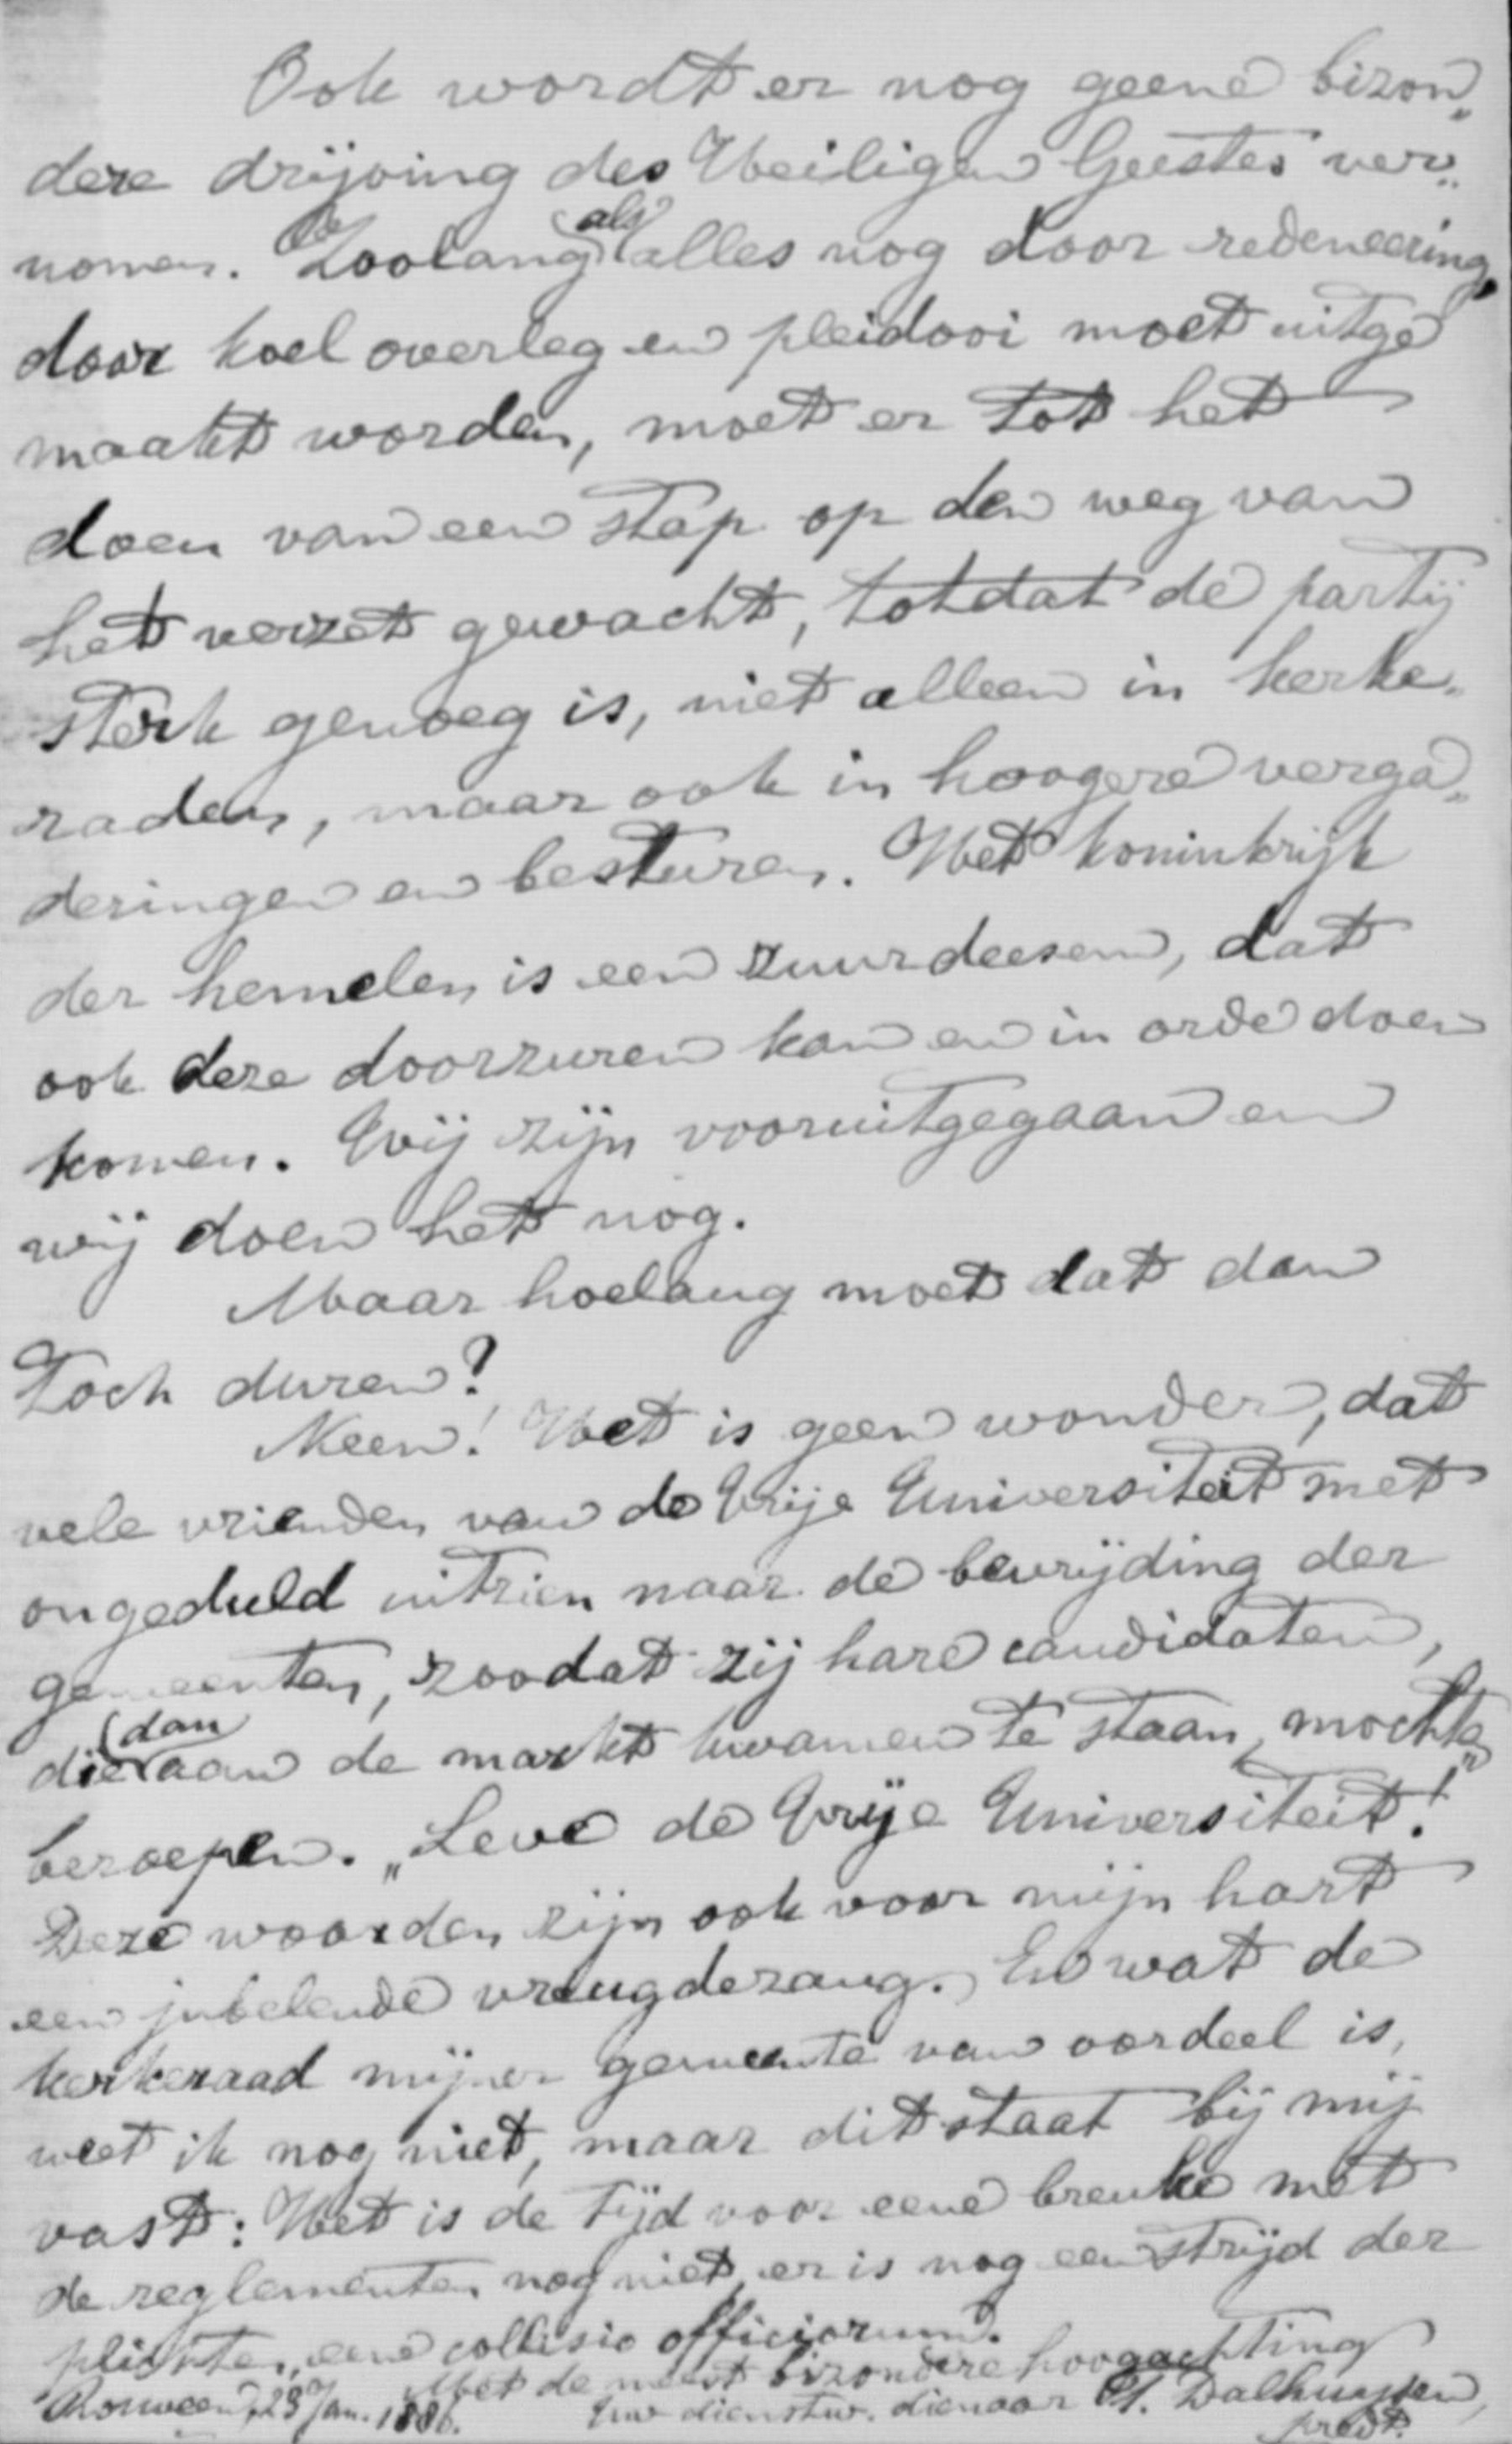 Ook wordt er nog geene bizon„
dere drijving des Heiligen Geestes ver„
nomen. Zoolang als alles nog door redeneering,
door koel overleg en pleidooi moet uitge
maakt worden, moet er tot het
doen van een stap op den weg van
het verzet gewacht, totdat de partij
sterk genoeg is, niet alleen in kerke„
raden, maar ook in hoogere verga„
deringen en besturen. Het koninkrijk
der hemelen is een zuurdeesem, dat
ook deze doorzuren kan en in orde doen
komen. Wij zijn vooruitgegaan en
wij doen het nog.
Maar hoelang moet dat dan
toch duren?
Neen! Het is geen wonder, dat
vele vrienden van de Vrije Universiteit met
ongeduld uitzien naar de bevrijding der
gemeenten, zoodat zij hare candidaten,
die dan aan de markt kwamen te staan, mochten
beroepen. „Leve de Vrije Universiteit!"
Deze woorden zijn ook voor mijn hart
een jubelende vreugdezang. En wat de
kerkeraad mijner gemeente van oordeel is,
weet ik nog niet, maar dit staat bij mij
vast: Het is de tijd voor eene breuke met
de reglementen nog niet, er is nog een strijd der
plichten, eene collisio officiorum.
Met de meest bizondere hoogachting
Rouveen, 23 Jan. 1886. Uw dienstw. dienaar Dalhuysen,
predt.